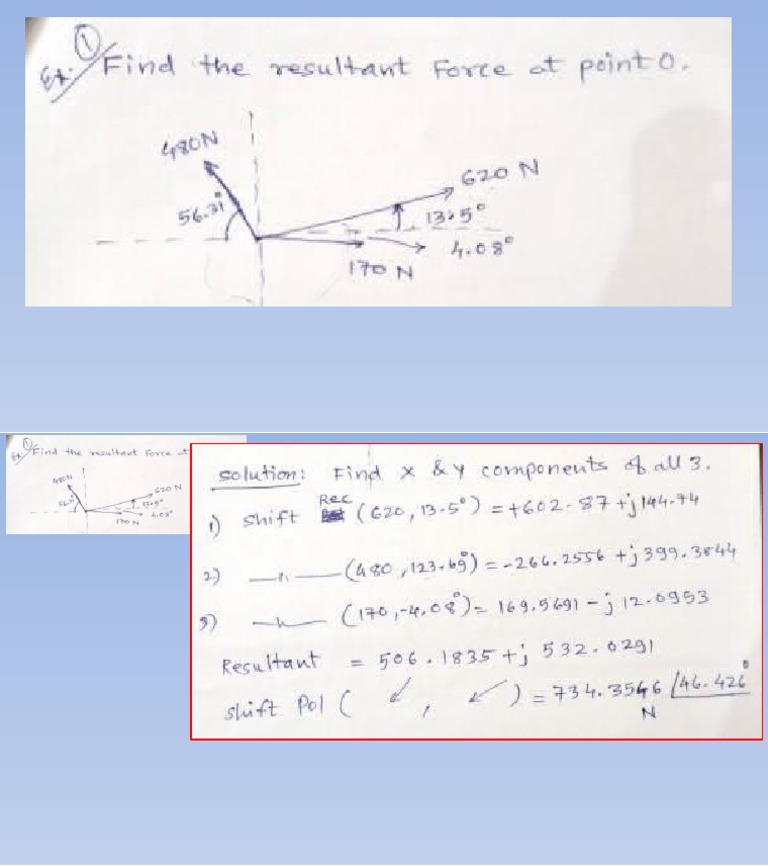 Ex: ① Find the resultant Force at point O.
480N
620 N
56.31°
13.5°
4.08°
170 N
Ex: ① Find the resultant Force at
480N
620 N
56.31°
13.5°
4.08°
170 N
Solution: Find x & y components of all 3.
1) shift Rec (620, 13.5°) = +602.87 + j 144.74
2) —〃— (480, 123.69°) = -266.2556 + j 399.3844
3) —〃— (170, -4.08°) = 169.5691 - j 12.0953
Resultant = 506.1835 + j 532.0291
shift Pol ( ↙ , ↙ ) = 734.3546 ∠46.426°
N